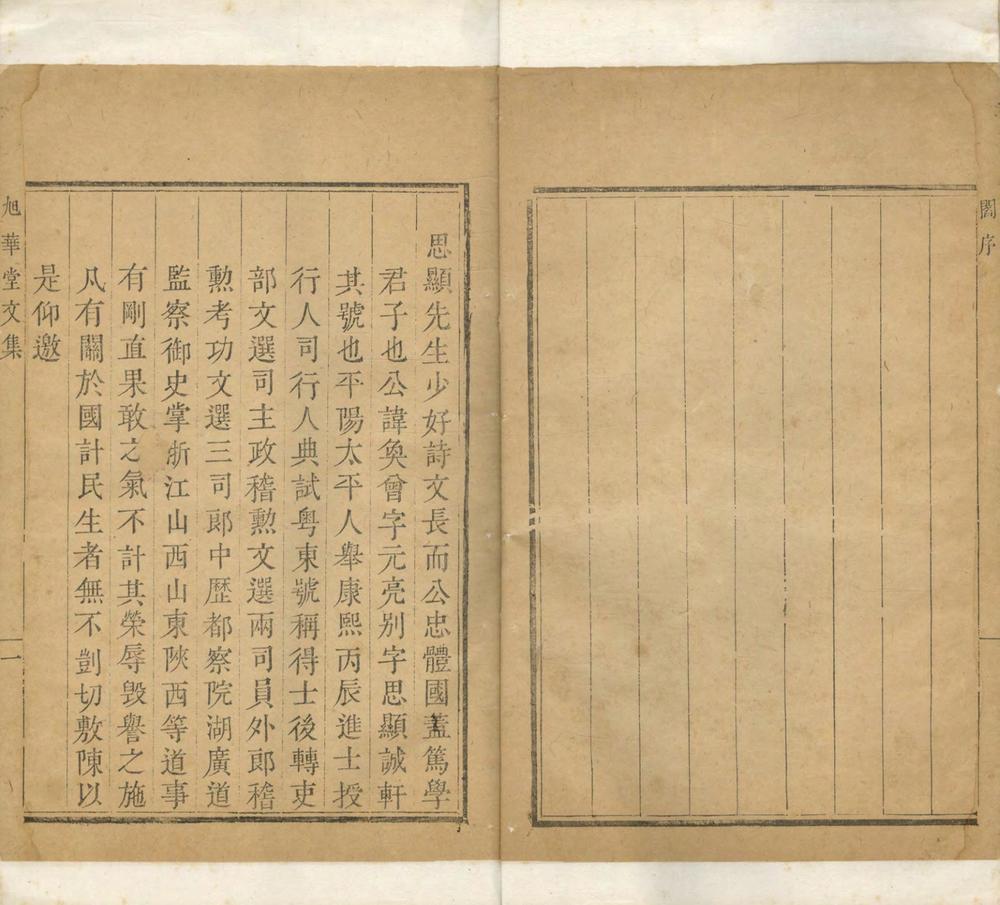 閻序
一
思顯先生少好詩文長而公忠體國蓋篤學
君子也公諱奐曾字元亮别字思顯誠軒
其號也平陽太平人舉康熙丙辰進士授
行人司行人典試粤東號稱得士後轉吏
部文選司主政稽勲文選兩司員外郎稽
勲考功文選三司郎中歴都察院湖廣道
監察御史掌浙江山西山東陝西等道事
有剛直果敢之氣不計其榮辱毁譽之施
凡有關於國計民生者無不剴切敷陳以
是仰邀
旭華堂文集
一